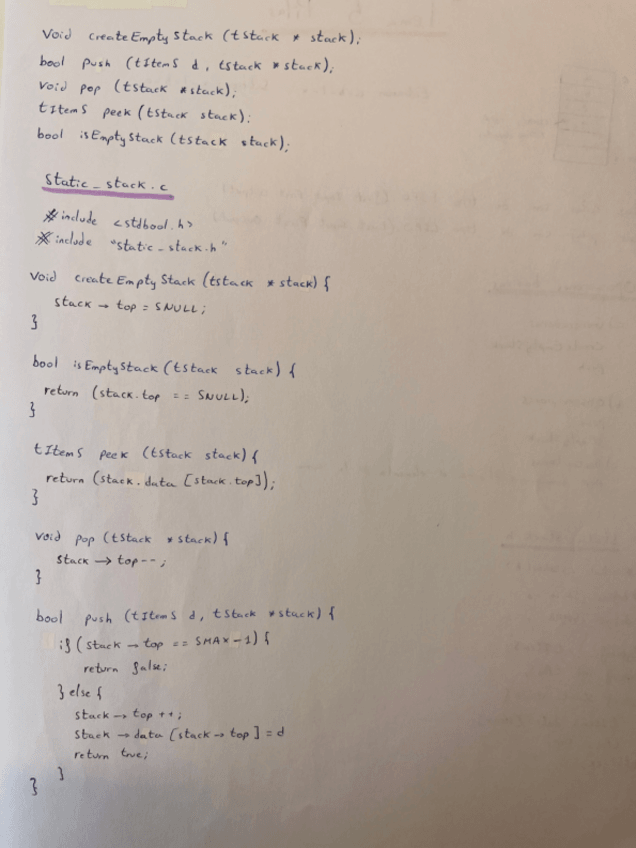 void createEmptyStack (tStack * stack);
bool push (tItemS d, tStack * stack);
void pop (tStack * stack);
tItemS peek (tStack stack);
bool isEmptyStack (tStack stack);
static_stack.c
#include <stdbool.h>
#include "static_stack.h"
void createEmptyStack (tStack * stack) {
stack → top = SNULL;
}
bool isEmptyStack (tStack stack) {
return (stack.top == SNULL);
}
tItemS peek (tStack stack) {
return (stack.data [stack.top]);
}
void pop (tStack * stack) {
stack → top--;
}
bool push (tItemS d, tStack * stack) {
if (stack → top == SMAX-1) {
return false;
} else {
stack → top ++;
stack → data [stack → top] = d
return true;
}
}